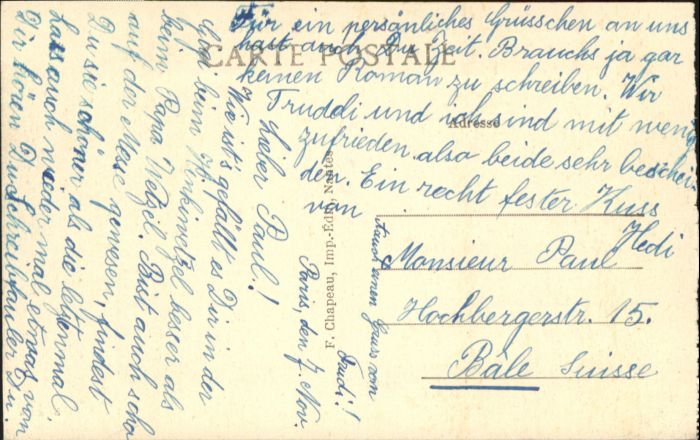 CARTE POSTALE
Adresse
F. Chapeau, Imp.-Édit., Nantes
Paris, den 7. Nov.
Lieber Paul!
Wie ist's gefällt es Dir in der
beim Hinkiwetzel besser als
beim Papa Wetzel. Bist auch scho
auf der Messe gewesen, findest
Du sie schöner als die letztenmal
Lass auch wieder mal etwas von
Dir hören Du Schreibfauler Du.
Für ein persönliches Grüsschen an uns
hast auch Du Zeit. Brauchs ja gar
keinen Roman zu schreiben. Wir
Truddi und ich sind mit wenig
zufrieden also beide sehr beschei
den. Ein recht fester Kuss
von Hedi
Auch einen Gruss von
Trudi!
Monsieur Paul
Hochbergerstr. 15.
Bâle Suisse